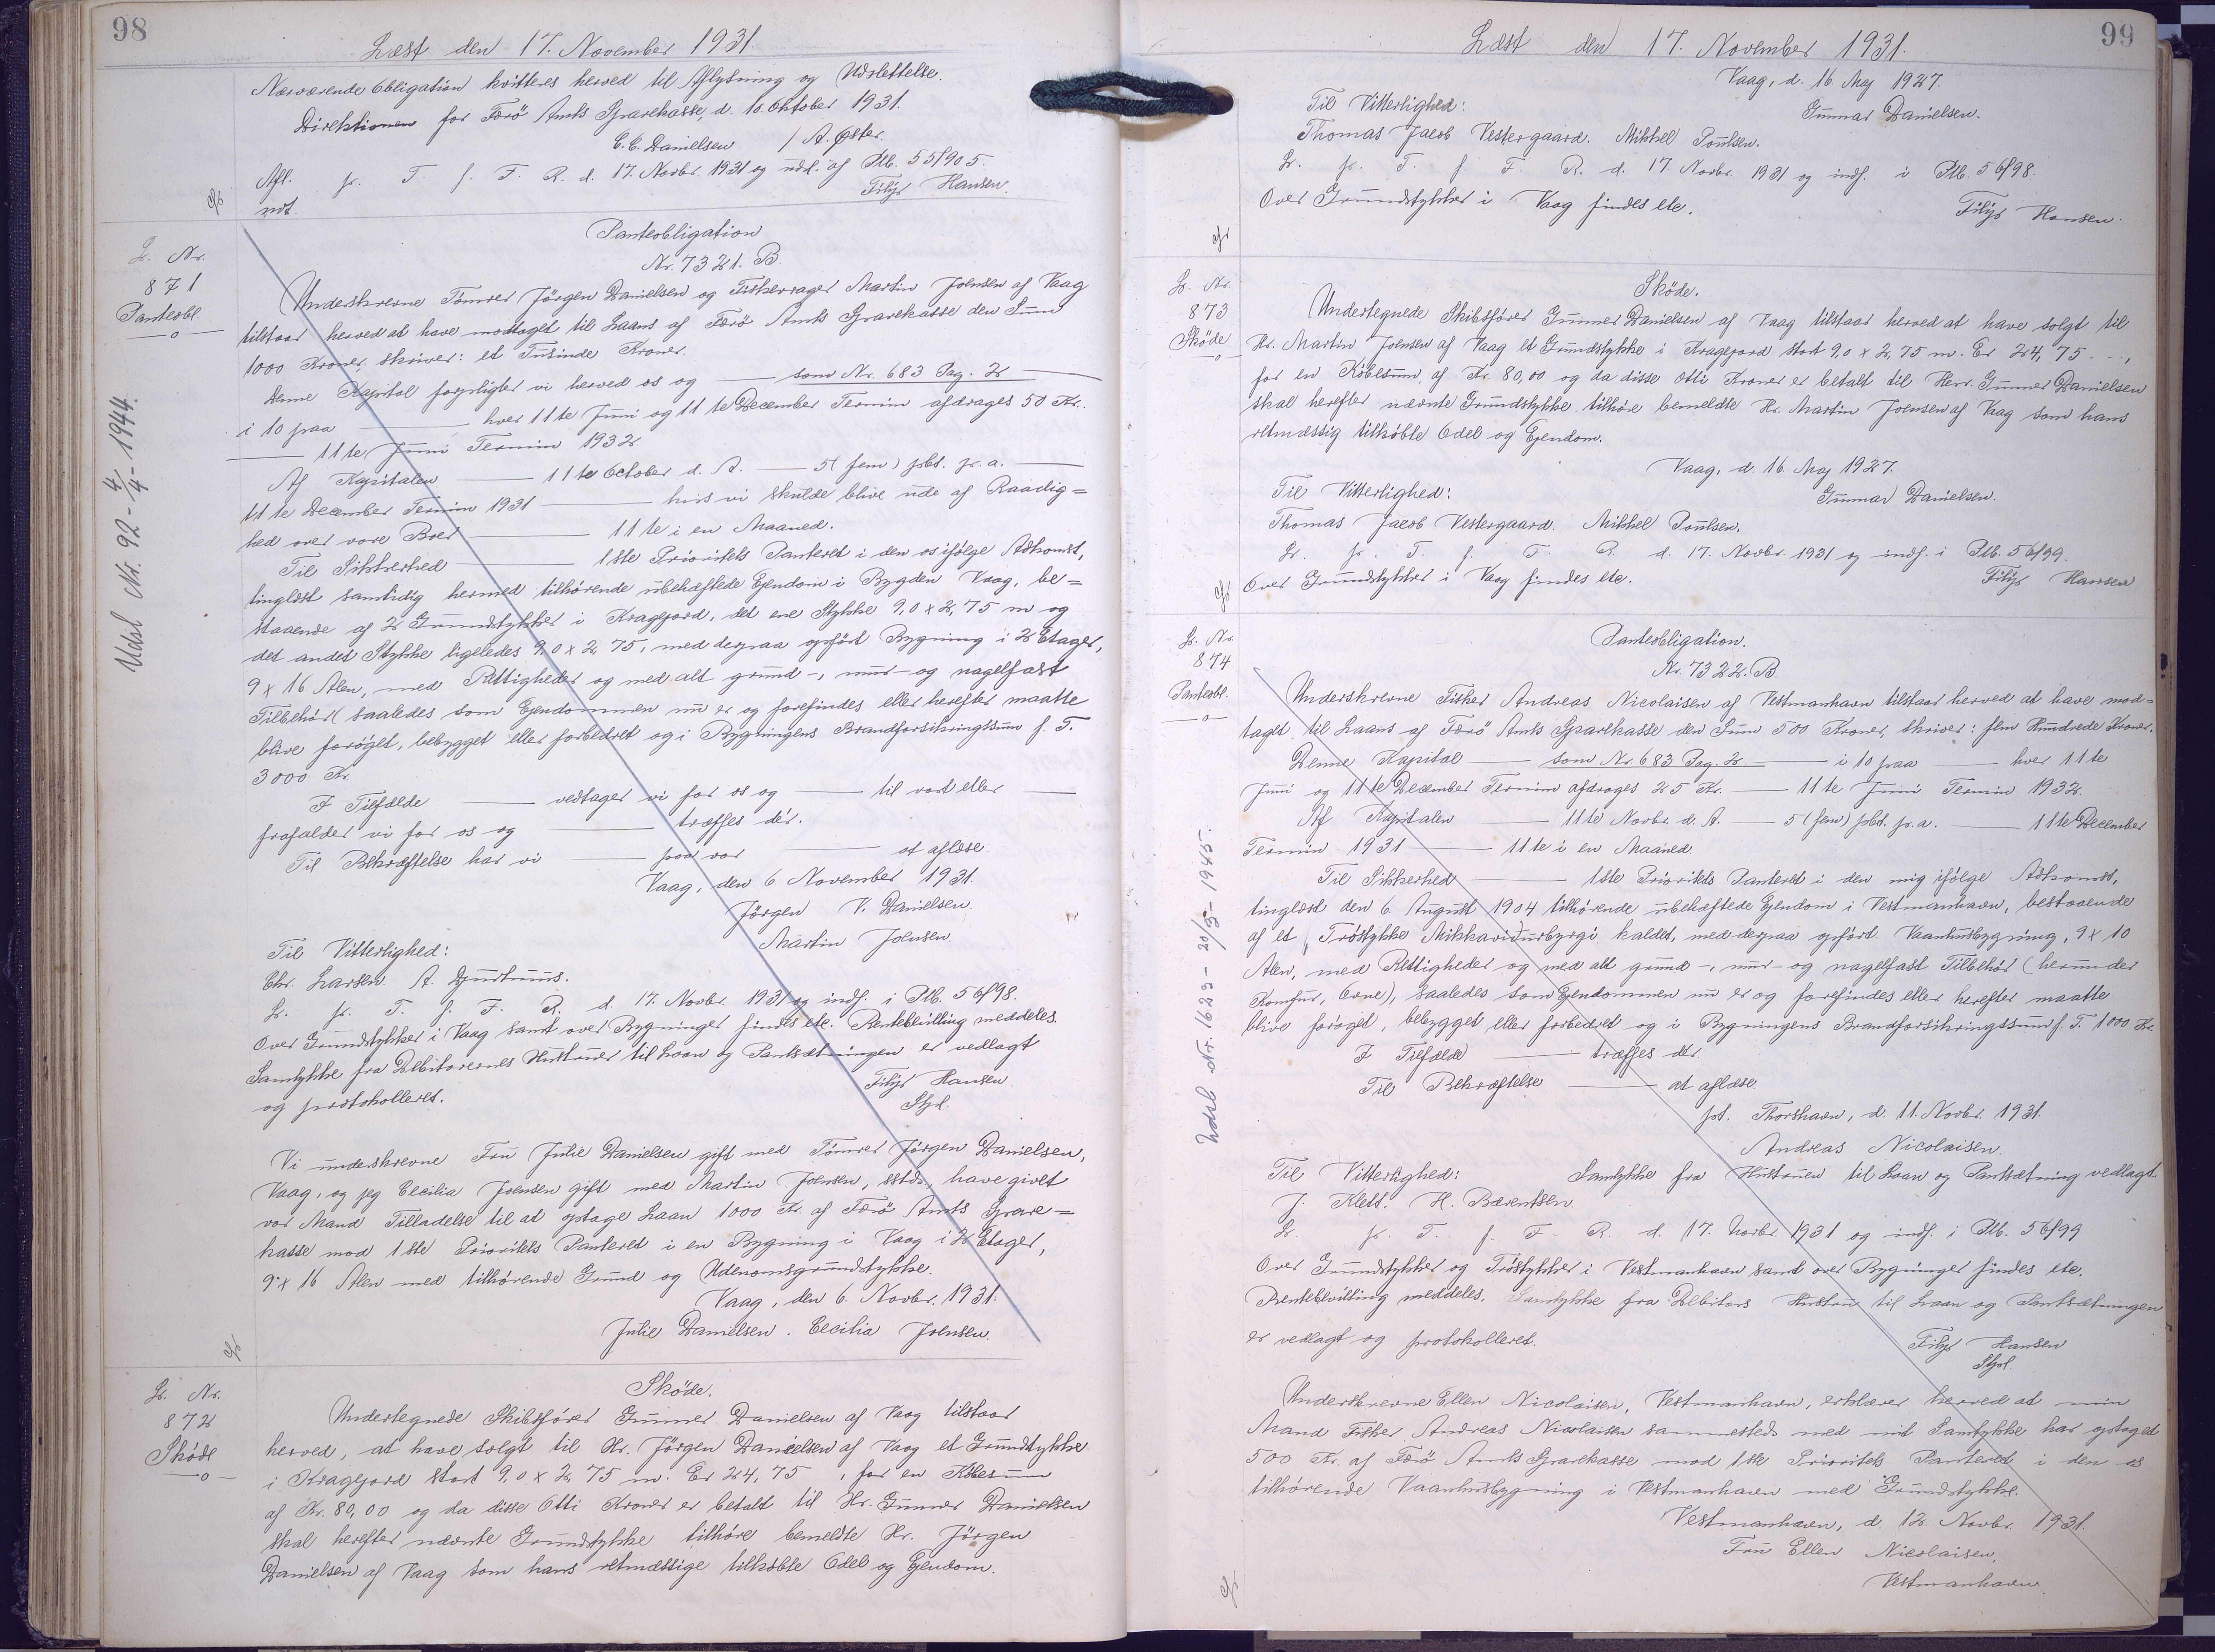 98
Læst den 17. November 1931.
Nærværende Obligation kvitteres herved til Aflysning og Udslettelse.
Direktionen for Færö Amts Sparekasse, d. 10 Oktober 1931.
C. C. Danielsen / A. Øster.
Afl. pr. T. f. F. R. d. 17. Novbr. 1931 og udsl. af Ptb. 55/905.
ndt. Filip Hansen.
L. Nr.
871
Panteobl.
Udsl. Nr. 92 - 4/4 - 1944.
Panteobligation
Nr. 7321. B.
Underskrevne Tömrer Jörgen Danielsen og Fiskevrager Martin Joensen af Vaag
tilstaar herved at have modtaget til Laans af Færö Amts Sparekasse den Sum
1000 Kroner, skriver: et Tusinde Kroner.
Denne Kapital forpligter vi herved os og — som Nr. 683 Pag. 2 —
i 10 paa — hver 11te Juni og 11te December Termin afdrages 50 Kr.
— 11te Juni Termin 1932
Af Kapitalen — 11te October d. A. — 5 (fem) pCt. p. a. —
11te December Termin 1931 — hvis vi skulde blive ude af Raadig=
hed over vore Boer — 11te i en Maaned.
Til Sikkerhed — 1ste Prioritets Panteret i den os ifölge Adkomst,
tinglæst samtidig hermed tilhörende ubehæftede Ejendom i Bygden Vaag, be=
staaende af 2 Grundstykker i Kragejord, det ene Stykke 9,0 x 2,75 m og
det andet Stykke ligeledes 9,0 x 2,75, med derpaa opfört Bygning i 2 Etager,
9 x 16 Alen, med Rettigheder og med alt grund-, mur- og nagelfast
Tilbehör (saaledes som Ejendommen nu er og forefindes eller herefter maatte
blive foröget, bebygget eller forbedret og i Bygningens Brandforsikringssum f. T.
3000 Kr.
I Tilfælde — vedtager vi for os og — til vort eller —
frafalder vi for os og — træffes dér.
Til Bekræftelse har vi — paa vor — at aflæse.
Vaag, den 6. November 1931.
Jörgen V. Danielsen.
Martin Joensen.
Til Vitterlighed:
Chr. Larsen. A. Djurhuus.
L. pr. T. f. F. R. d. 17. Novbr. 1931 og indf. i Ptb. 56/98.
Over Grundstykker i Vaag samt over Bygninger findes etc. Rentebevilling meddeles.
Samtykke fra Debitorernes Hustruer til Laan og Pantsætningen er vedlagt
og protokolleret. Filip Hansen
Stpl.
Vi underskrevne Fru Julie Danielsen gift med Tömrer Jörgen Danielsen,
Vaag, og jeg Cecilia Joensen gift med Martin Joensen, sstds, have givet
vor Mand Tilladelse til at optage Laan 1000 Kr. af Færö Amts Spare=
kasse mod 1ste Prioritets Panteret i en Bygning i Vaag i 2 Etager,
9 x 16 Alen med tilhörende Grund og Udenomsgrundstykke.
Vaag, den 6. Novbr. 1931.
Julie Danielsen. Cecilia Joensen.
L. Nr.
872
Sköde
Sköde.
Undertegnede Skibsförer Gunner Danielsen af Vaag tilstaar
herved, at have solgt til Hr. Jörgen Danielsen af Vaag et Grundstykke
i Kragejord stort 9,0 x 2,75 m. Er 24,75 , for en Købesum
af Kr. 80,00 og da disse Otti Kroner er betalt til Hr. Gunner Danielsen
skal herefter nævnte Grundstykke tilhöre bemeldte Hr. Jörgen
Danielsen af Vaag som hans retmæssige tilköbte Odel og Ejendom.
99
Læst den 17. November 1931.
Vaag, d. 16 Maj 1927.
Til Vitterlighed: Gunnar Danielsen.
Thomas Jacob Vestergaard. Mikkel Poulsen.
L. pr. T. f. F. R. d. 17. Novbr. 1931 og indf. i Ptb. 56/98.
Over Grundstykker i Vaag findes etc. Filip Hansen.
L. Nr.
873
Sköde
Sköde.
Undertegnede Skibsförer Gunner Danielsen af Vaag tilstaar herved at have solgt til
Hr. Martin Joensen af Vaag et Grundstykke i Kragejord stort 9,0 x 2,75 m. Er 24,75 - - ,
for en Köbesum af Kr. 80,00 og da disse Otti Kroner er betalt til Herr. Gunner Danielsen
skal herefter nævnte Grundstykke tilhöre bemeldte Hr. Martin Joensen af Vaag som hans
retmæssig tilköbte Odel og Ejendom.
Vaag, d. 16 Maj 1927.
Til Vitterlighed: Gunnar Danielsen.
Thomas Jacob Vestergaard. Mikkel Poulsen.
L. pr. T. f. F. R. d. 17. Novbr. 1931 og indf. i Ptb. 56/99.
Over Grundstykker i Vaag findes etc. Filip Hansen
L. Nr.
874
Panteobl.
Udsl. Nr. 1623 - 20/5 - 1945.
Panteobligation.
Nr. 7322. B.
Underskrevne Fisker Andreas Nicolaisen af Vestmanhavn tilstaar herved at have mod=
taget til Laans af Færö Amts Sparekasse den Sum 500 Kroner, skriver: fem Hundrede Kroner.
Denne Kapital — som Nr. 683 Pag. 2 — i 10 paa — hver 11te
Juni og 11te December Termin afdrages 25 Kr. — 11te Juni Termin 1932.
Af Kapitalen — 11te Novbr. d. A. — 5 (fem) pCt. p. a. — 11te December
Termin 1931 — 11te i en Maaned
Til Sikkerhed — 1ste Prioritets Panteret i den mig ifölge Adkomst,
tinglæst den 6. August 1904 tilhörende ubehæftede Ejendom i Vestmanhavn, bestaaende
af et Tröstykke Mikkaviðurbyrgi kaldet, med derpaa opfört Vaanhusbygning, 9 x 10
Alen, med Rettigheder og med alt grund-, mur- og nagelfast Tilbehör (herunder
Komfur, Ovne), saaledes som Ejendommen nu er og forefindes eller herefter maatte
blive foroget, bebygget eller forbedret og i Bygningens Brandforsikringssum f. T. 1000 Kr.
I Tilfælde — træffes dér
Til Bekræftelse — at aflæse
pt. Thorshavn, d. 11. Novbr. 1931.
Andreas Nicolaisen.
Til Vitterlighed: Samtykke fra Hustruen til Laan og Pantsætning vedlagt.
J. Klett. H. Bærentsen.
L. pr. T. f. F. R. d. 17. Novbr. 1931 og indf. i Ptb. 56/99
Over Grundstykker og Tröstykker i Vestmanhavn samt over Bygninger findes etc.
Rentebevilling meddeles. Samtykke fra Debitors Hustru til Laan og Pantsætningen
er vedlagt og protokolleret. Filip Hansen
Stpl.
Underskrevne Ellen Nicolaisen, Vestmanhavn, erklærer herved at min
Mand Fisker Andreas Nicolaisen sammesteds med mit Samtykke har optaget
500 Kr. af Færö Amts Sparekasse mod 1ste Prioritets Panteret i den os
tilhörende Vaanhusbygning i Vestmanhavn med Grundstykke.
Vestmanhavn, d. 12. Novbr. 1931.
Fru Ellen Nicolaisen,
Vestmanhavn.